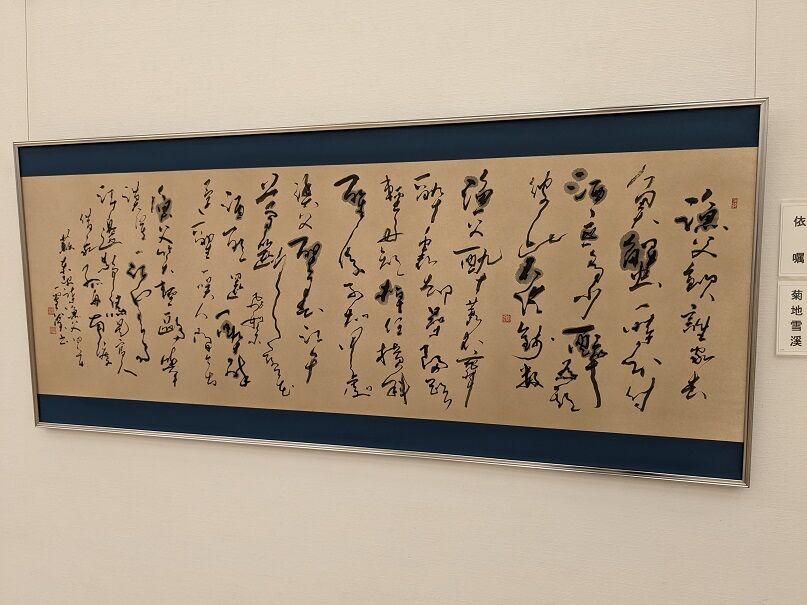 漁父飲誰家去
魚蟹一時分付
酒無多少醉為期
彼此不論錢數
漁父醉蓑衣舞
醉裏却尋歸路
輕舟短棹任橫斜
醒後不知何處
漁父醒春江午
夢斷落花飛絮
酒醒還醉醉
還醒一笑人間今古
漁父笑輕鷗舉
漠漠一江風雨
江邊騎馬是官人
借我孤舟南渡
蘇東坡詩漁父四首 雪溪書
依嘱
菊地雪溪